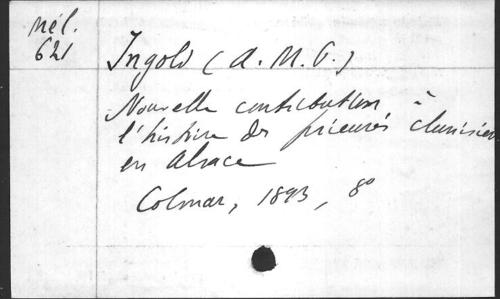 Mél.
621
Ingold (A. M. P.)
Nouvelle contribution à
l'histoire des prieurés clunisiens
en Alsace
Colmar, 1893, 8°